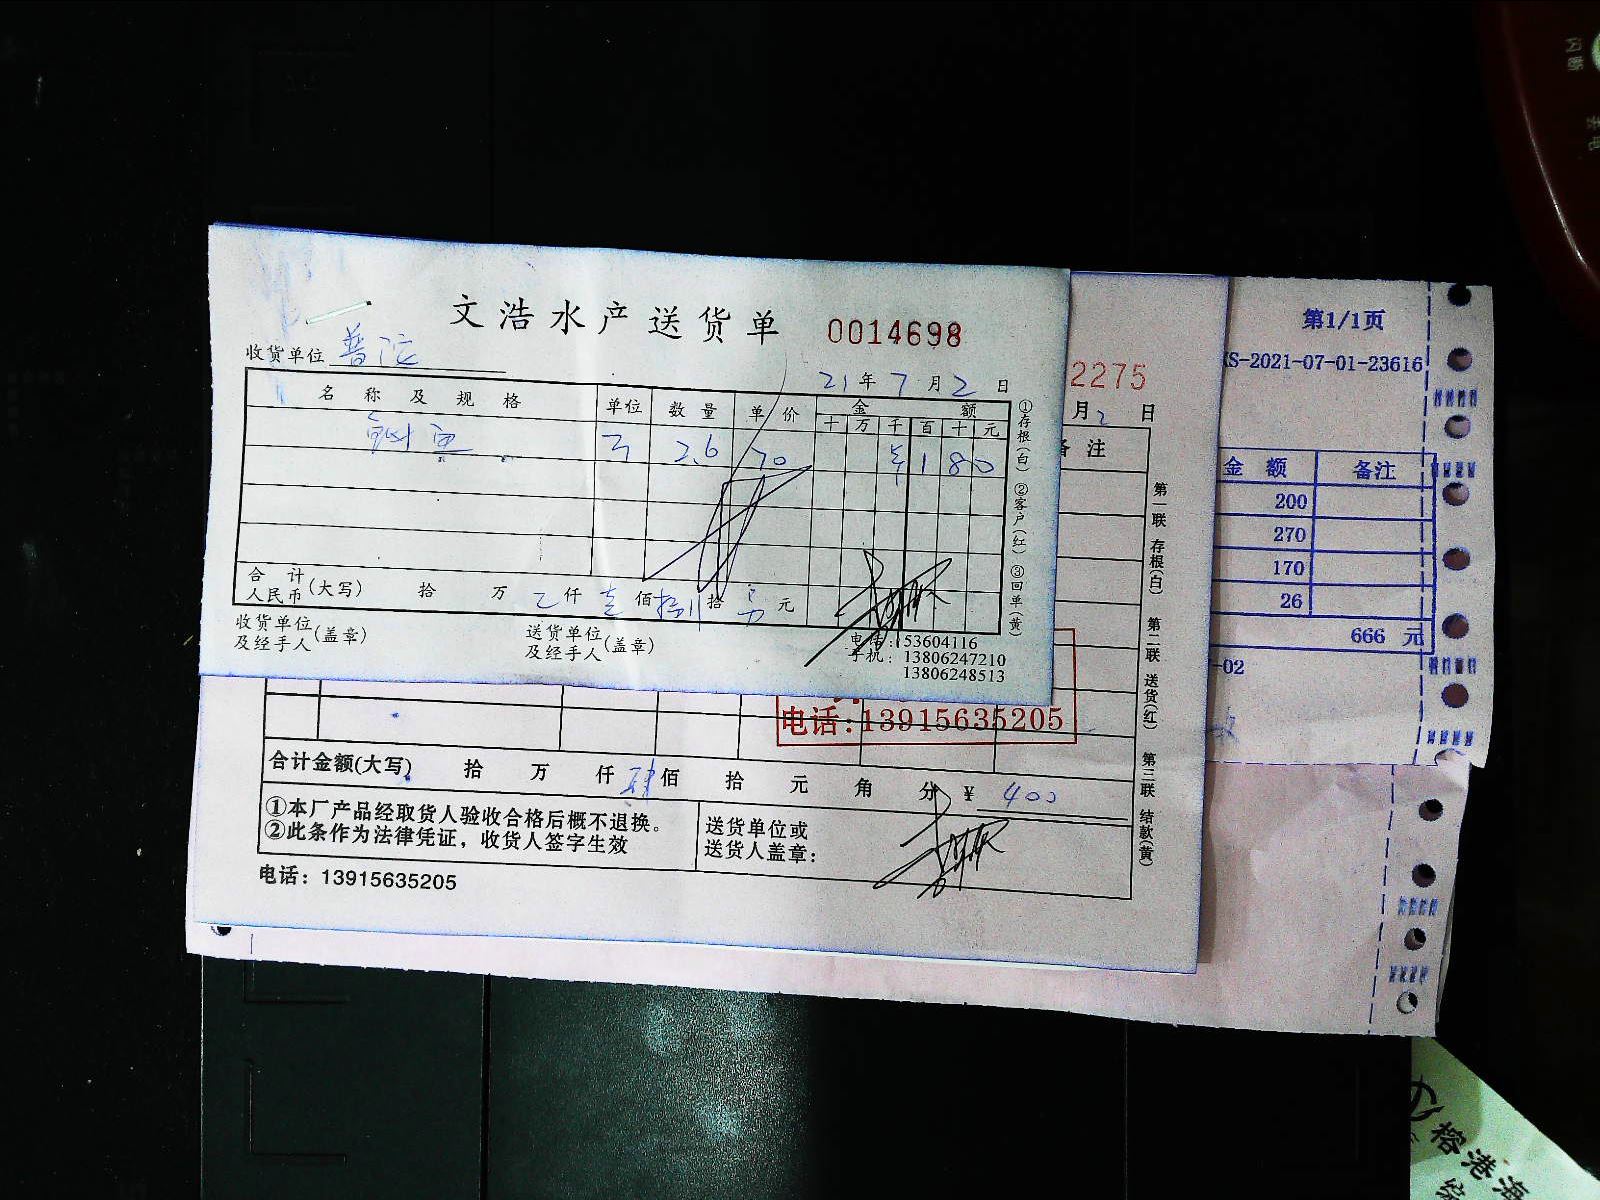 文浩水产送货单 0014698
收货单位 普沱
21年7月2日
名称及规格 单位 数量 单价 金额
十 万 千 百 十 元
鱼 2.6 70 1 8 0
合计人民币(大写) 拾 万 仟 壹佰 捌拾 元
收货单位及经手人(盖章) 送货单位及经手人(盖章)
电话:53604116
手机:13806247210
13806248513
①存根(白) ②客户(红) ③回单(黄)
2275
月2日
备注
第一联 存根(白) 第二联 送货(红) 第三联 结款(黄)
电话:13915635205
合计金额(大写) 拾 万 仟 肆佰 拾 元 角 分 ¥ 400
①本厂产品经取货人验收合格后概不退换。
②此条作为法律凭证,收货人签字生效
送货单位或
送货人盖章:
电话:13915635205
第1/1页
S-2021-07-01-23616
金额 备注
200
270
170
26
666 元
-02
闪断
榕港海